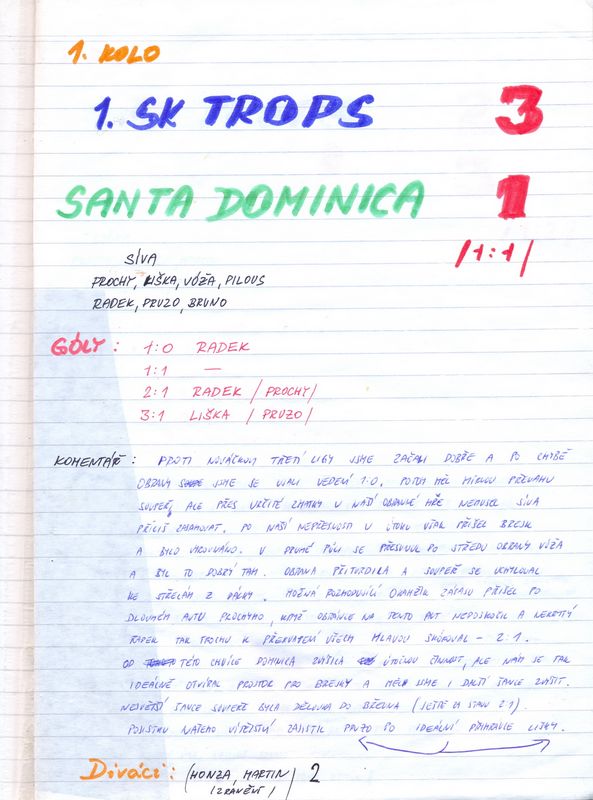 1. KOLO
1. SK TROPS 3
SANTA DOMINICA 1
/1:1/
SÍVA
PROCHY, LIŠKA, VÓŽA, PILOUS
RADEK, PRUZO, BRUNO
GÓLY: 1:0 RADEK
1:1 —
2:1 RADEK /PROCHY/
3:1 LIŠKA /PRUZO/
KOMENTÁŘ: PROTI NOVÁČKOVI TŘETÍ LIGY JSME ZAČALI DOBŘE A PO CHYBĚ
OBRANY JSME SE UJALI VEDENÍ 1:0. POTOM MĚL MÍRNOU PŘEVAHU
SOUPEŘ, ALE PŘES URČITÉ ZMATKY V NAŠÍ OBRANNÉ HŘE NEMUSEL SÍVA
PŘÍLIŠ ZASAHOVAT. PO NAŠÍ NEPŘESNOSTI V ÚTOKU VŠAK PŘIŠEL BREJK
A BYLO VYROVNÁNO. V DRUHÉ PŮLI SE PŘESUNUL DO STŘEDU OBRANY VÓŽA
A BYL TO DOBRÝ TAH. OBRANA PŘITVRDILA A SOUPEŘ SE UCHYLOVAL
KE STŘELÁM Z DÁLKY. MOŽNÁ ROZHODUJÍCÍ OKAMŽIK ZÁPASU PŘIŠEL PO
DLOUHÉM AUTU PROCHYHO, KDYŽ OBRÁNCE NA TENTO AUT NEDOSKOČIL A NEKRYTÝ
RADEK TAK TROCHU K PŘEKVAPENÍ VŠECH HLAVOU SKÓROVAL – 2:1.
OD TÉTO CHVÍLE DOMINICA ZVÝŠILA ÚTOČNOU ČINNOST, ALE NÁM SE TAK
IDEÁLNĚ OTVÍRAL PROSTOR PRO BREJKY A MĚLI JSME I DALŠÍ ŠANCE ZVÝŠIT.
NEJVĚTŠÍ ŠANCE SOUPEŘE BYLA DĚLOVKA DO BŘEVNA (JEŠTĚ ZA STAVU 2:1).
POJISTKU NAŠEHO VÍTĚZSTVÍ ZAJISTIL PRUZO PO IDEÁLNÍ PŘIHRÁVCE LIŠKY.
Diváci: (HONZA, MARTIN) 2
/ZRANĚNÍ/